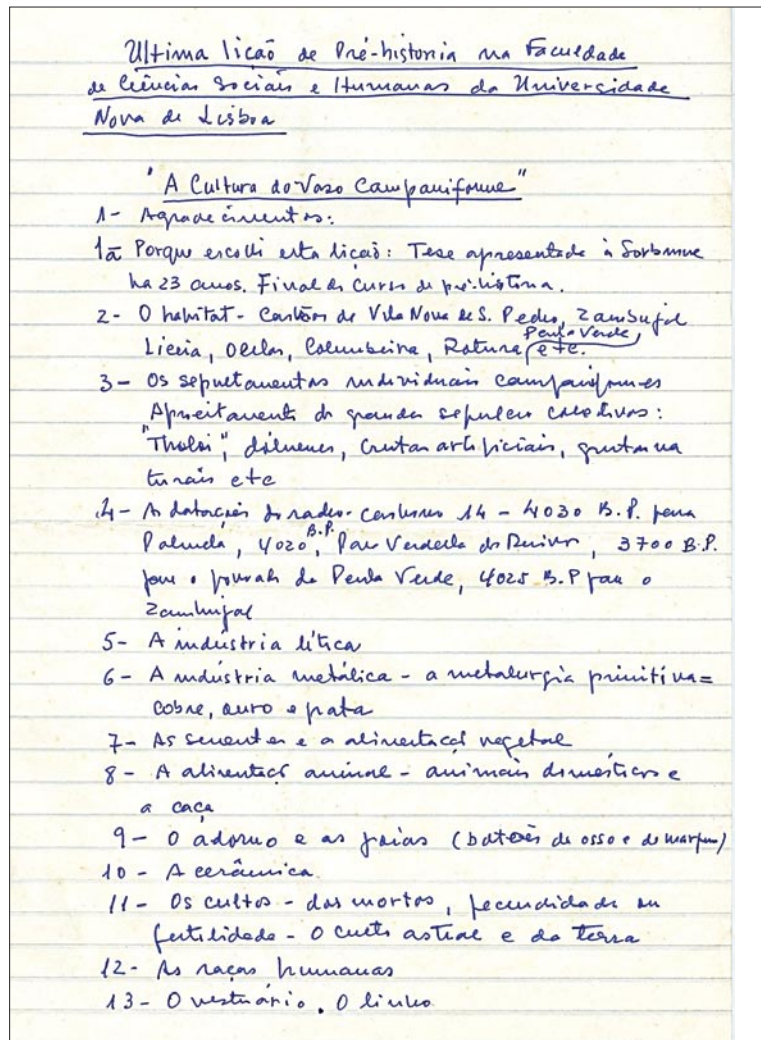 Ultima lição de Pré-historia na Faculdade
de Ciências Sociais e Humanas da Universidade
Nova de Lisboa
"A Cultura do Vaso Campaniforme"
1- Agradecimentos:
1ª Porque escolhi esta lição: Tese apresentada à Sorbonne
ha 23 anos. Final do Curso de pré-história.
2- O habitat - Castros de Vila Nova de S. Pedro, Zambujal
Liceia, Ocelas, Columbeira, Rotura, Penha Verde, etc.
3- Os sepultamentos individuais campaniformes
Aproveitamento de grandes sepulcros colectivos:
"Tholoi", dólmenes, Grutas artificiais, grutas na
turais etc
4- As datações do radio-carbono 14 - 4030 B.P. para
Palmela, 4020 B.P., 3700 B.P.
para o povoado da Penha Verde, 4025 B.P para o
Zambujal
5- A indústria lítica
6- A indústria metálica - a metalurgia primitiva=
cobre, ouro e prata
7- As sementes e a alimentação vegetal
8- A alimentação animal - animais domésticos e
a caça
9- O adorno e as joias (botões de osso e de marfim)
10- A cerâmica
11- Os cultos - dos mortos, fecundidade ou
fertilidade - O culto astral e da terra
12- As raças humanas
13- O vestuário. O linho